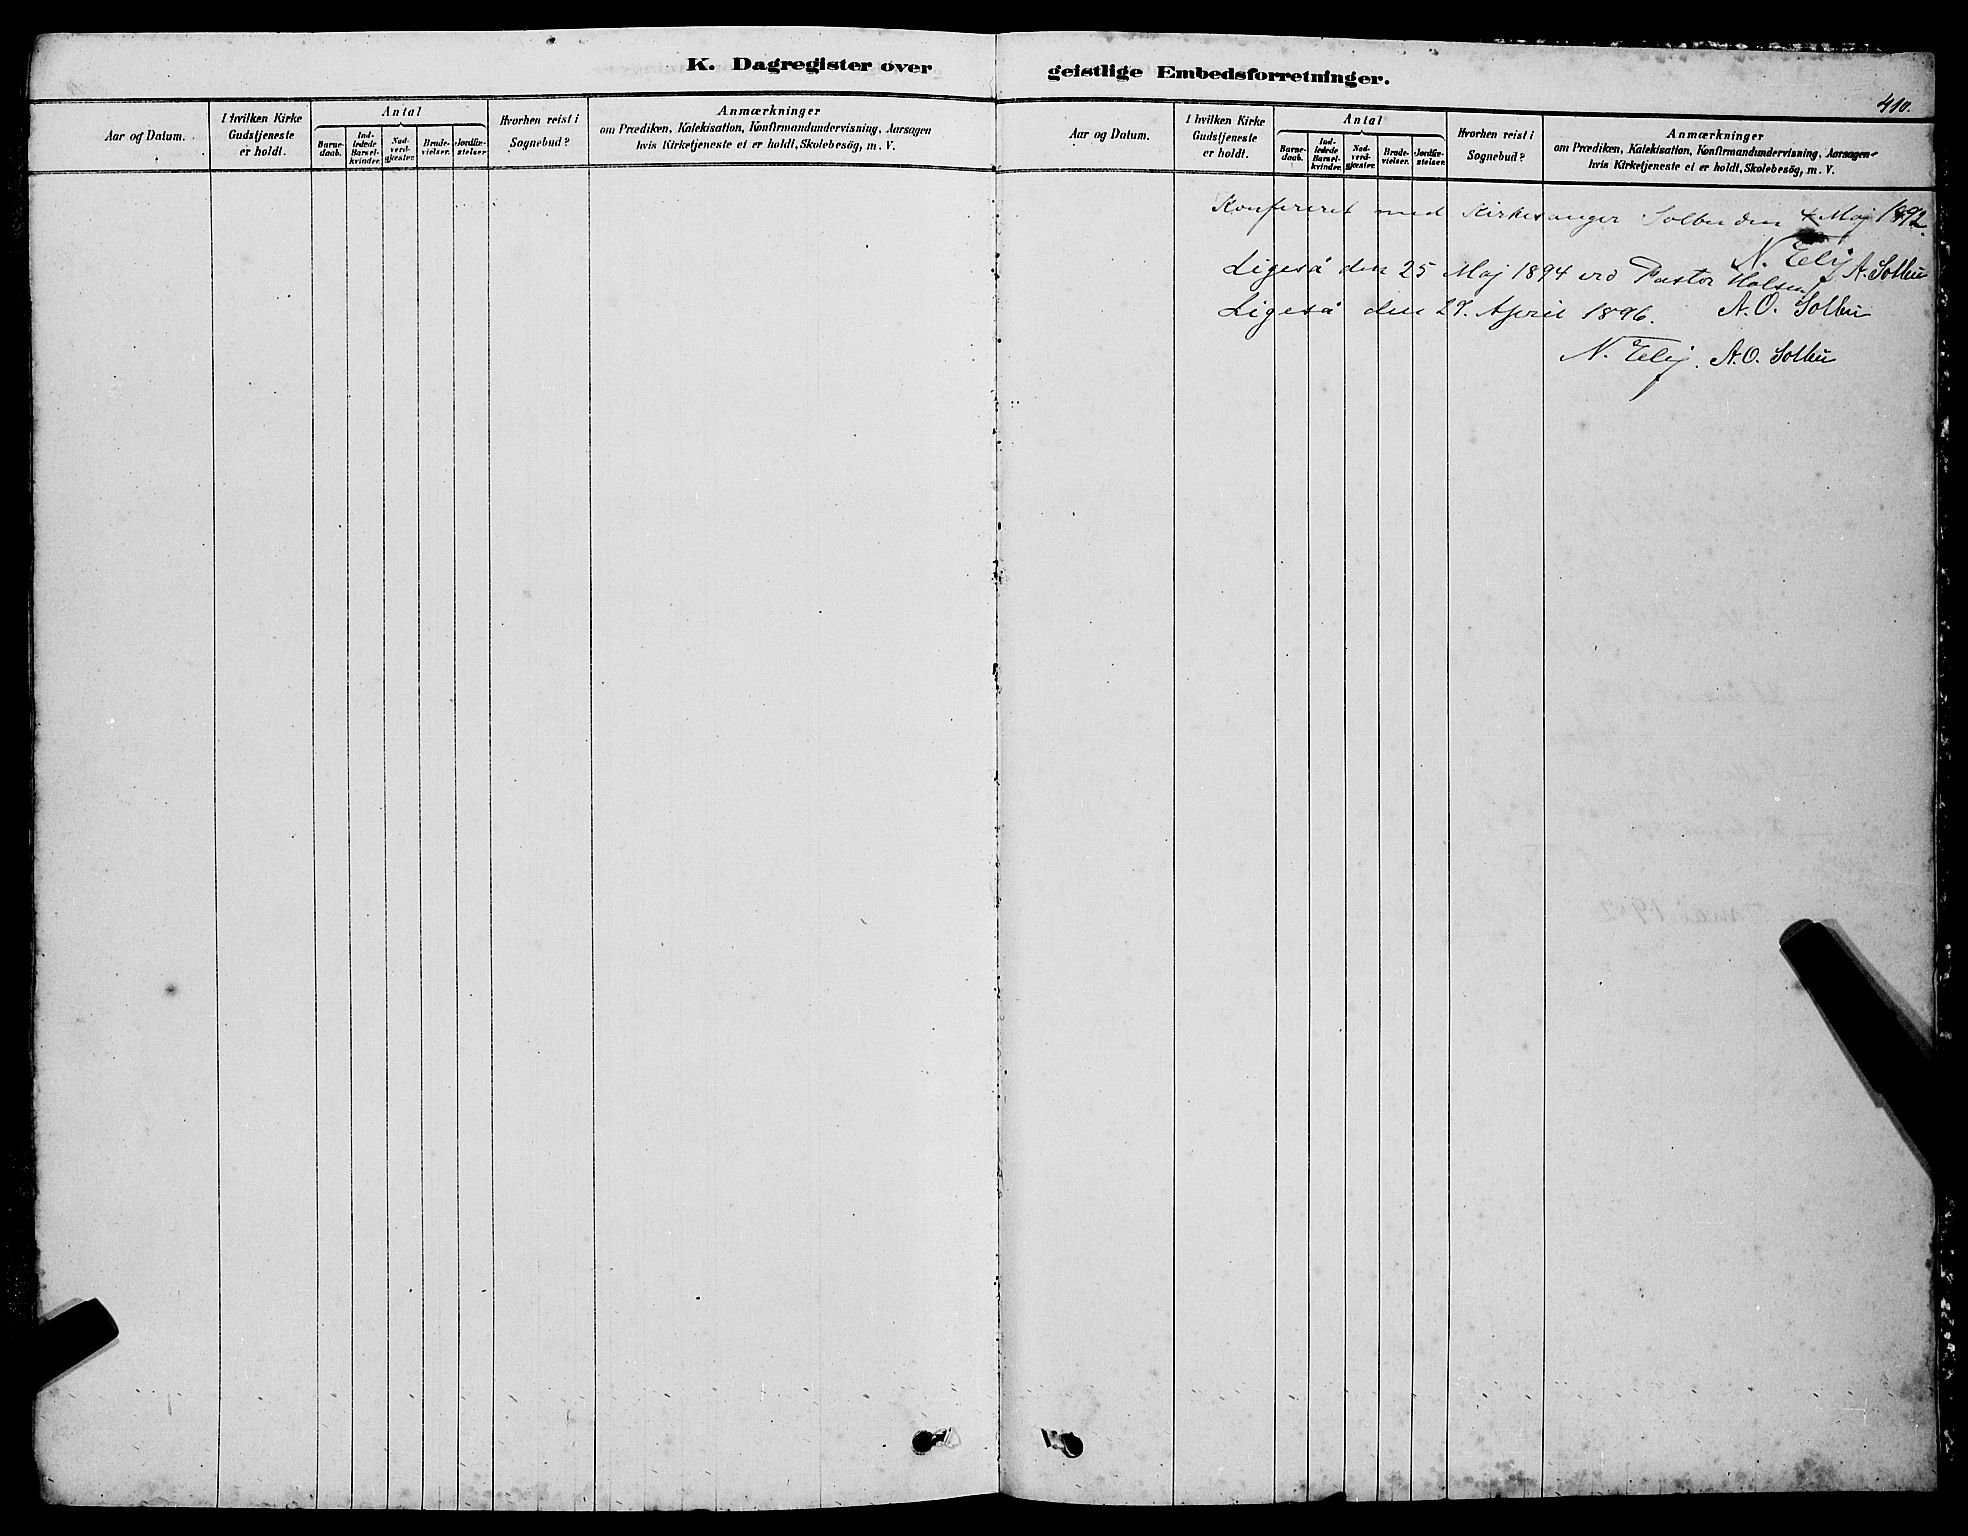 K. Dagregister over geistlige Embedsforretninger.
410.
Aar og Datum.
I hvilken Kirke
Gudstjeneste
er holdt.
Antal
Barne-
daab.
Ind-
ledede
Barsel-
kvinder.
Nad-
verd-
gjester.
Brude-
vielser.
Jordfæ-
stelser.
Hvorhen reist i
Sognebud?
Anmærkninger
om Prædiken, Katekisation, Konfirmandundervisning, Aarsagen
hvis Kirketjeneste ei er holdt, Skolebesög, m. V.
Aar og Datum.
I hvilken Kirke
Gudstjeneste
er holdt.
Antal
Barne-
daab.
Ind-
ledede
Barsel-
kvinder.
Nad-
verd-
gjester.
Brude-
vielser.
Jordfæ-
stelser.
Hvorhen reist i
Sognebud?
Anmærkninger
om Prædiken, Katekisation, Konfirmandundervisning, Aarsagen
hvis Kirketjeneste ei er holdt, Skolebesög, m. V.
Konfereret med Kirkesanger Solbu den 4 Maj 1892.
N. A. Solbu
Ligeså den 25 Maj 1894 ved Pastor Holsen
Ligeså den 27. April 1896. A. O. Solbu
N. A. O. Solbu